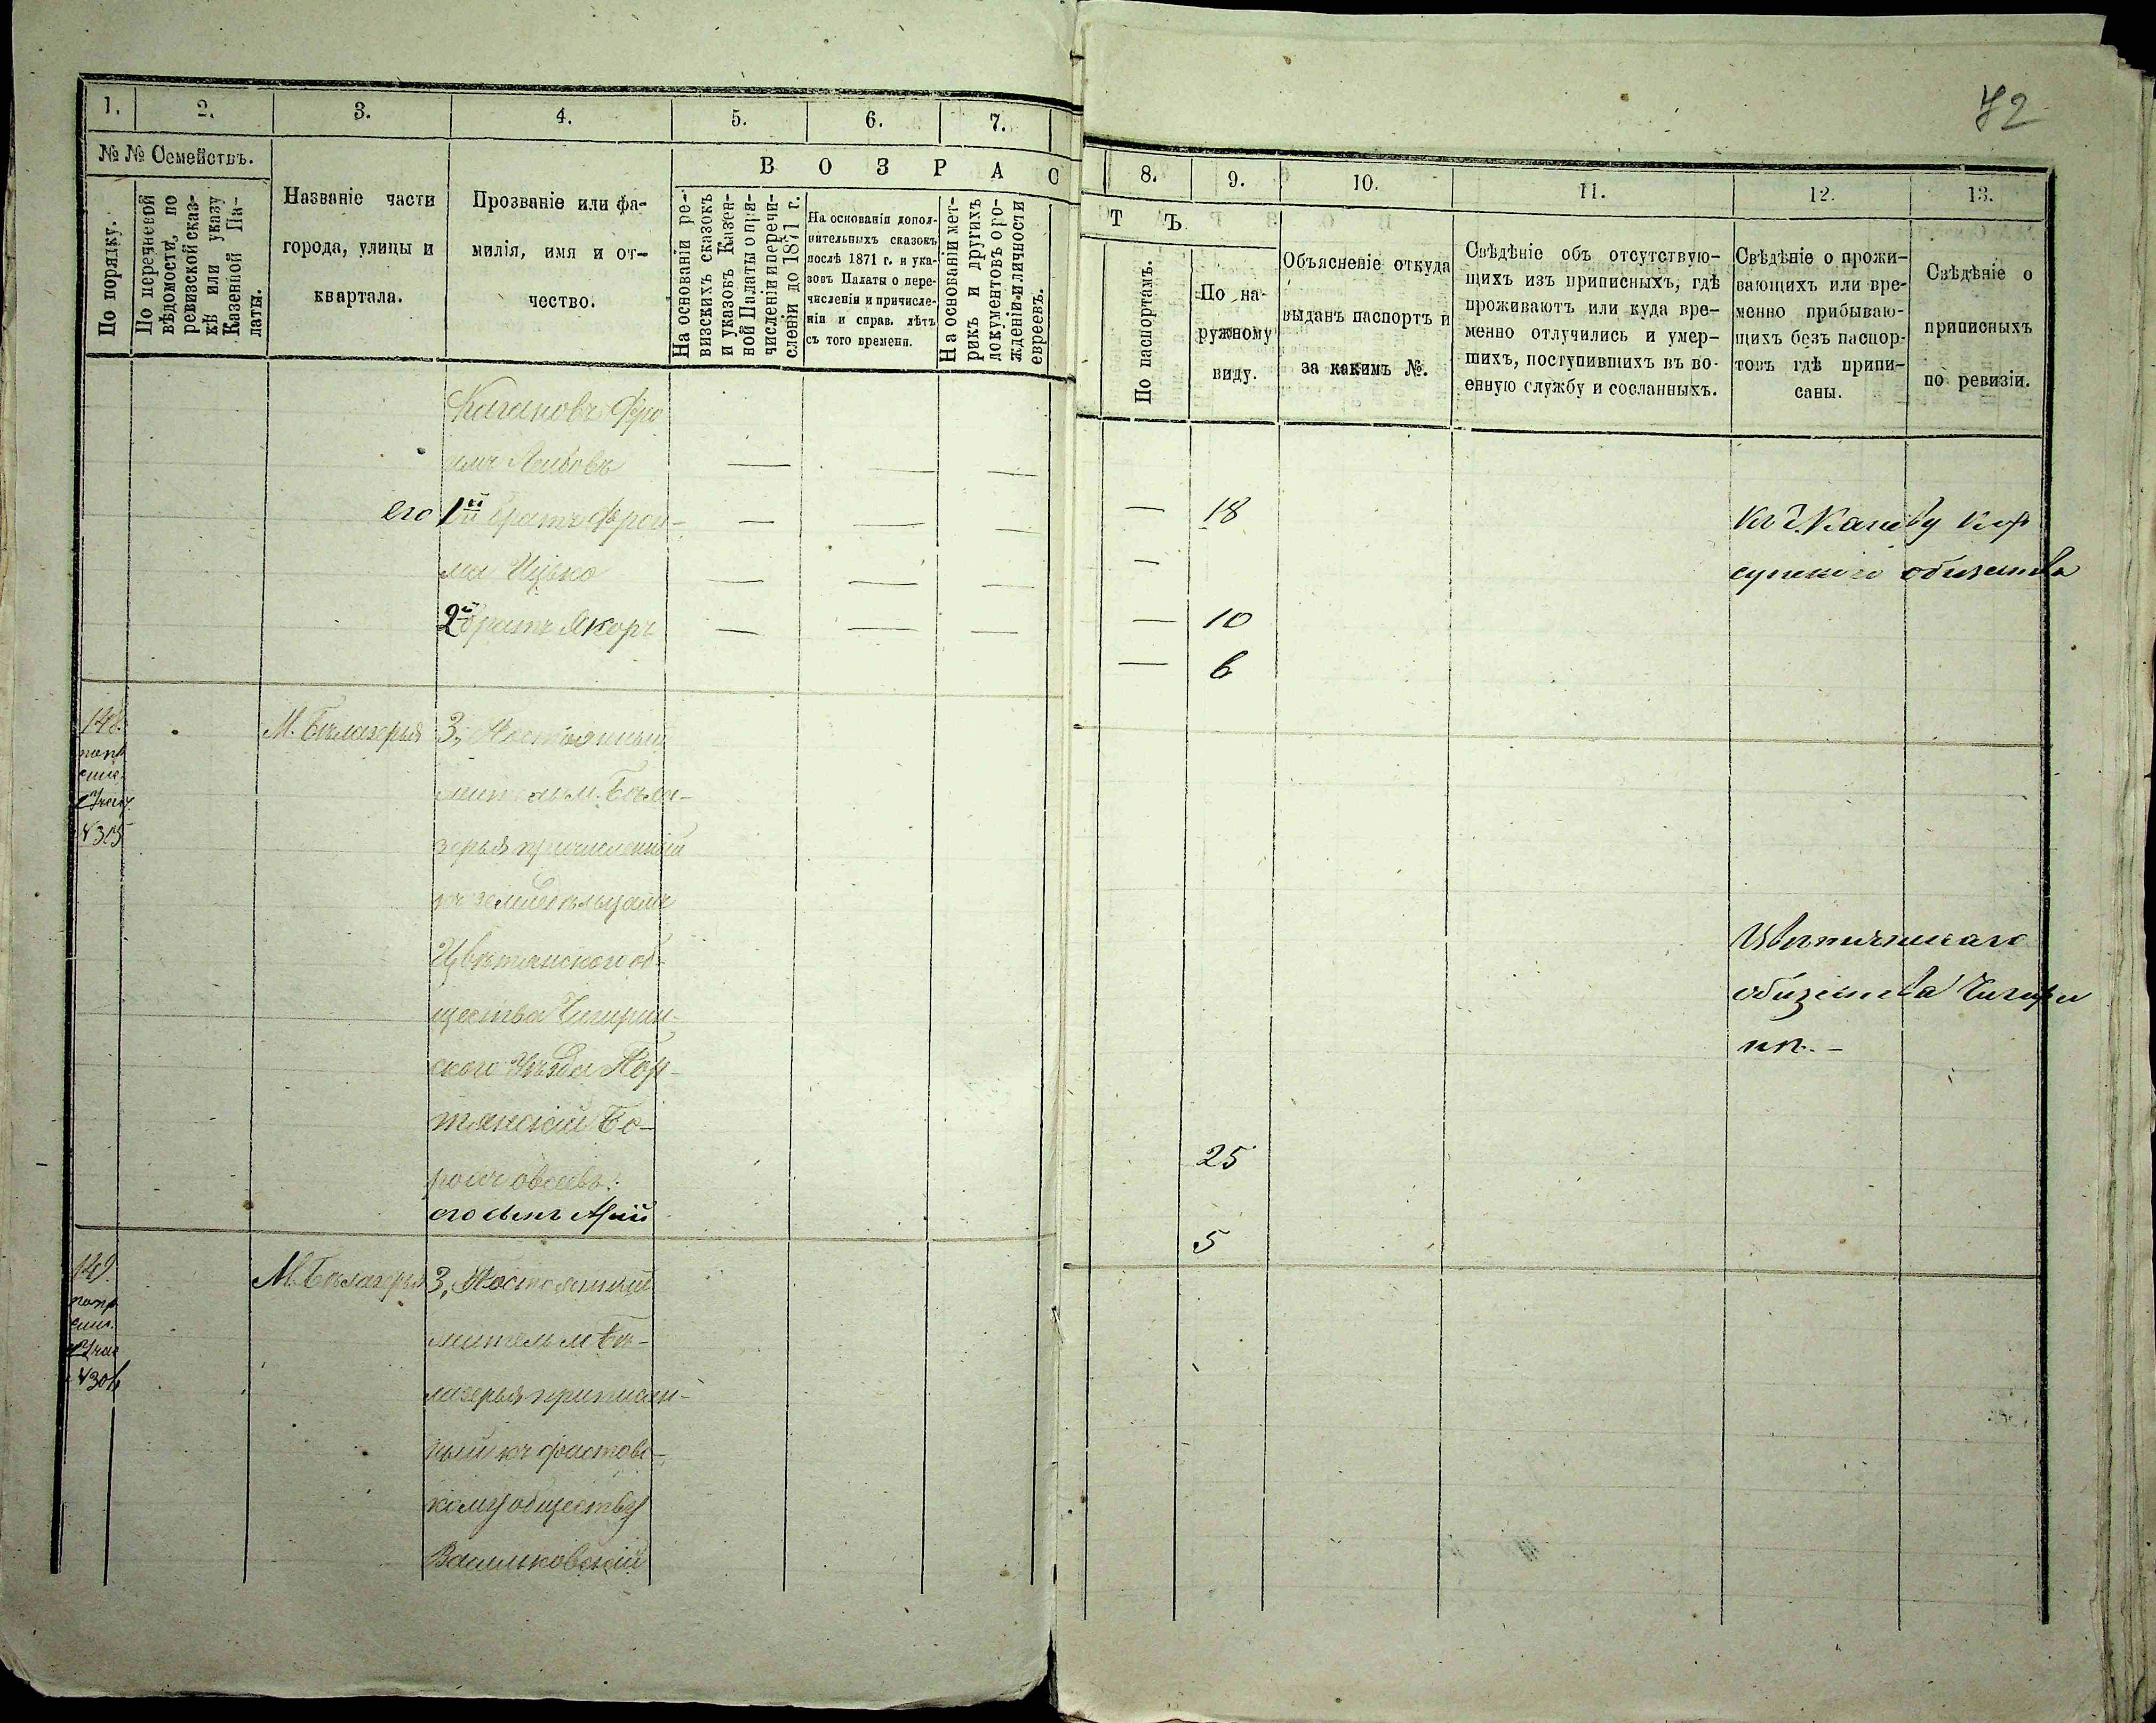 72
1. 2. 3. 4. 5. 6. 7.
8. 9. 10. 11. 12. 13.
№ № Семействъ.
По порядку.
По перечневой
вѣдомости, по
ревизской сказ-
кѣ или указу
Казенной Па-
латы.
Названіе части
города, улицы и
квартала.
Прозваніе или фа-
милія, имя и от-
чество.
В О З Р А С
Т Ъ
На основаніи ре-
визскихъ сказокъ
и указовъ Казен-
ной Палаты о при-
численіи и перечи-
сленіи до 1871 г.
На основаніи допол-
нительныхъ сказокъ
послѣ 1871 г. и ука-
зовъ Палаты о пере-
численіи и причисле-
ніи и справ. лѣтъ
съ того времени.
На основаніи мет-
рикъ и другихъ
документовъ о ро-
жденіи и личности
евреевъ.
По паспортамъ.
По на-
ружному
виду.
Объясненіе откуда
выданъ паспортъ и
за какимъ №.
Свѣдѣніе объ отсутствую-
щихъ изъ приписныхъ, гдѣ
проживаютъ или куда вре-
менно отлучились и умер-
шихъ, поступившихъ въ во-
енную службу и сосланныхъ.
Свѣдѣніе о прожи-
вающихъ или вре-
менно прибываю-
щихъ безъ паспор-
товъ гдѣ припи-
саны.
Свѣдѣніе о
приписныхъ
по ревизіи.
Кагановъ Фро
имъ Лейбовъ
его 1й братъ Фрои-
ма Ицько
2й братъ
— — — — 18
— — — —
— — — — 10
— 6
Каневу Кор
сунскаго общества
148.
М. Бѣлозерья 3, Постоянный
житель м. Бѣла-
зерья причисленный
къ земледѣльцамъ
Цвѣтянскаго об-
щества Чигирин-
скаго уѣзда
25
его сынъ
5
общества Чигири
149.
М. Бѣлазерья 3, Постоянный
житель м Бѣ-
лазерья приписан-
ный къ фастовс-
кому обществу
Васильковскій